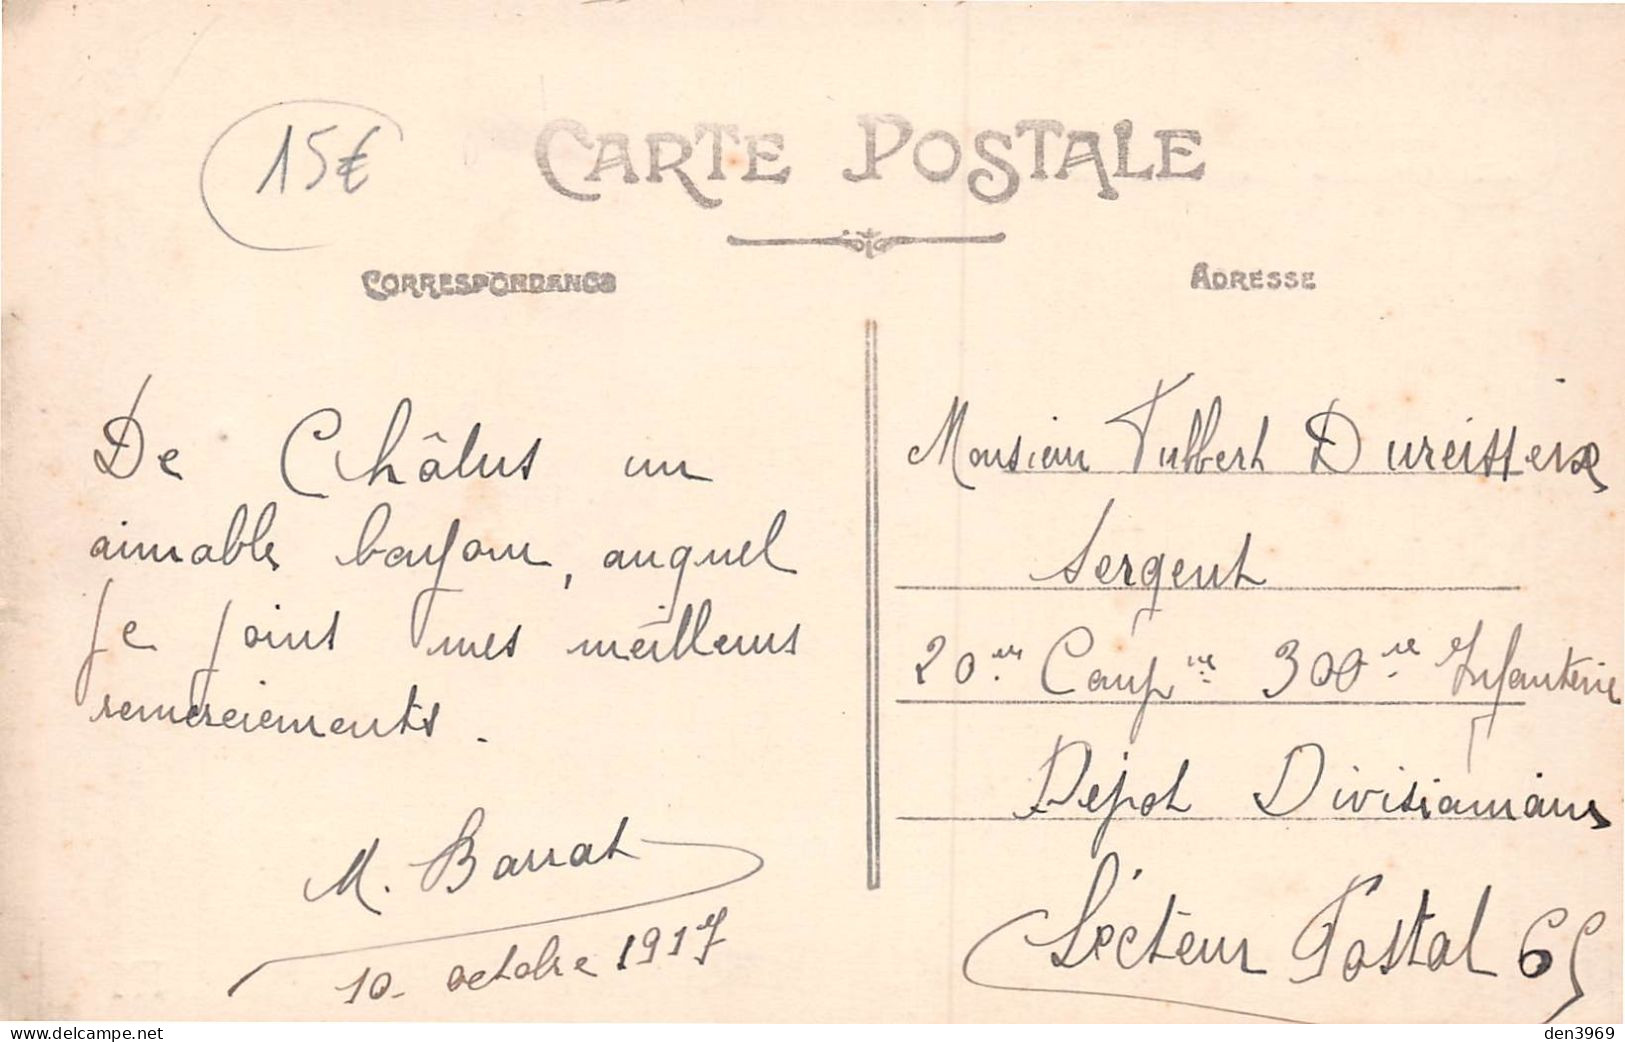 15€
CARTE POSTALE
CORRESPONDANCE
ADRESSE
De Châlus un
aimable bonjour, auquel
je joins mes meilleurs
remerciements.
M. Barrat
10. octobre 1917
Monsieur
Sergent
20me Compnie 300me Infanterie
Dépot Divisionnaire
Sécteur Postal 65
www.delcampe.net
den3969